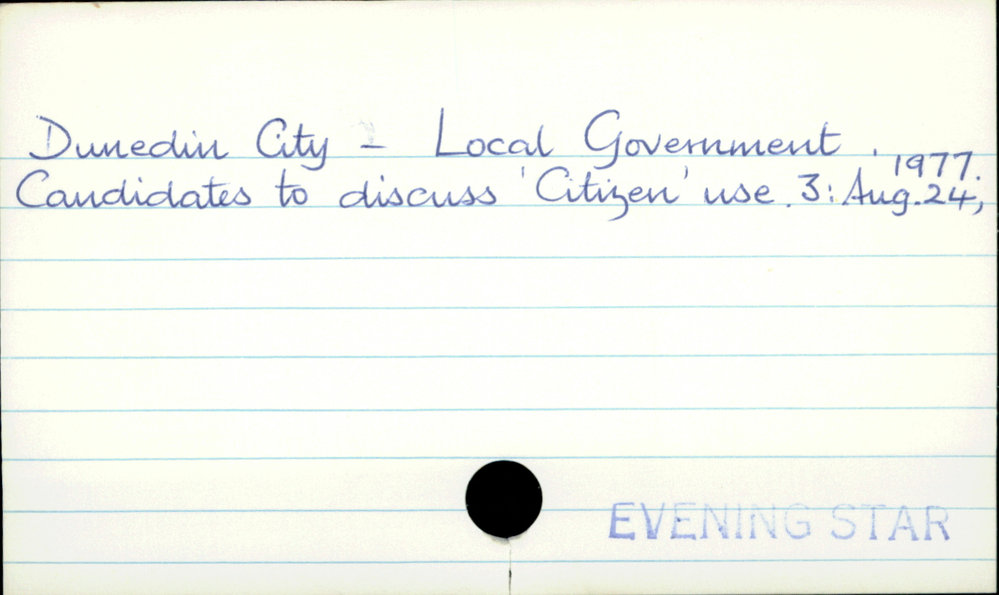 Dunedin City - Local Government.
Candidates to discuss 'Citizen' use. 3: Aug. 24, 1977.
EVENING STAR